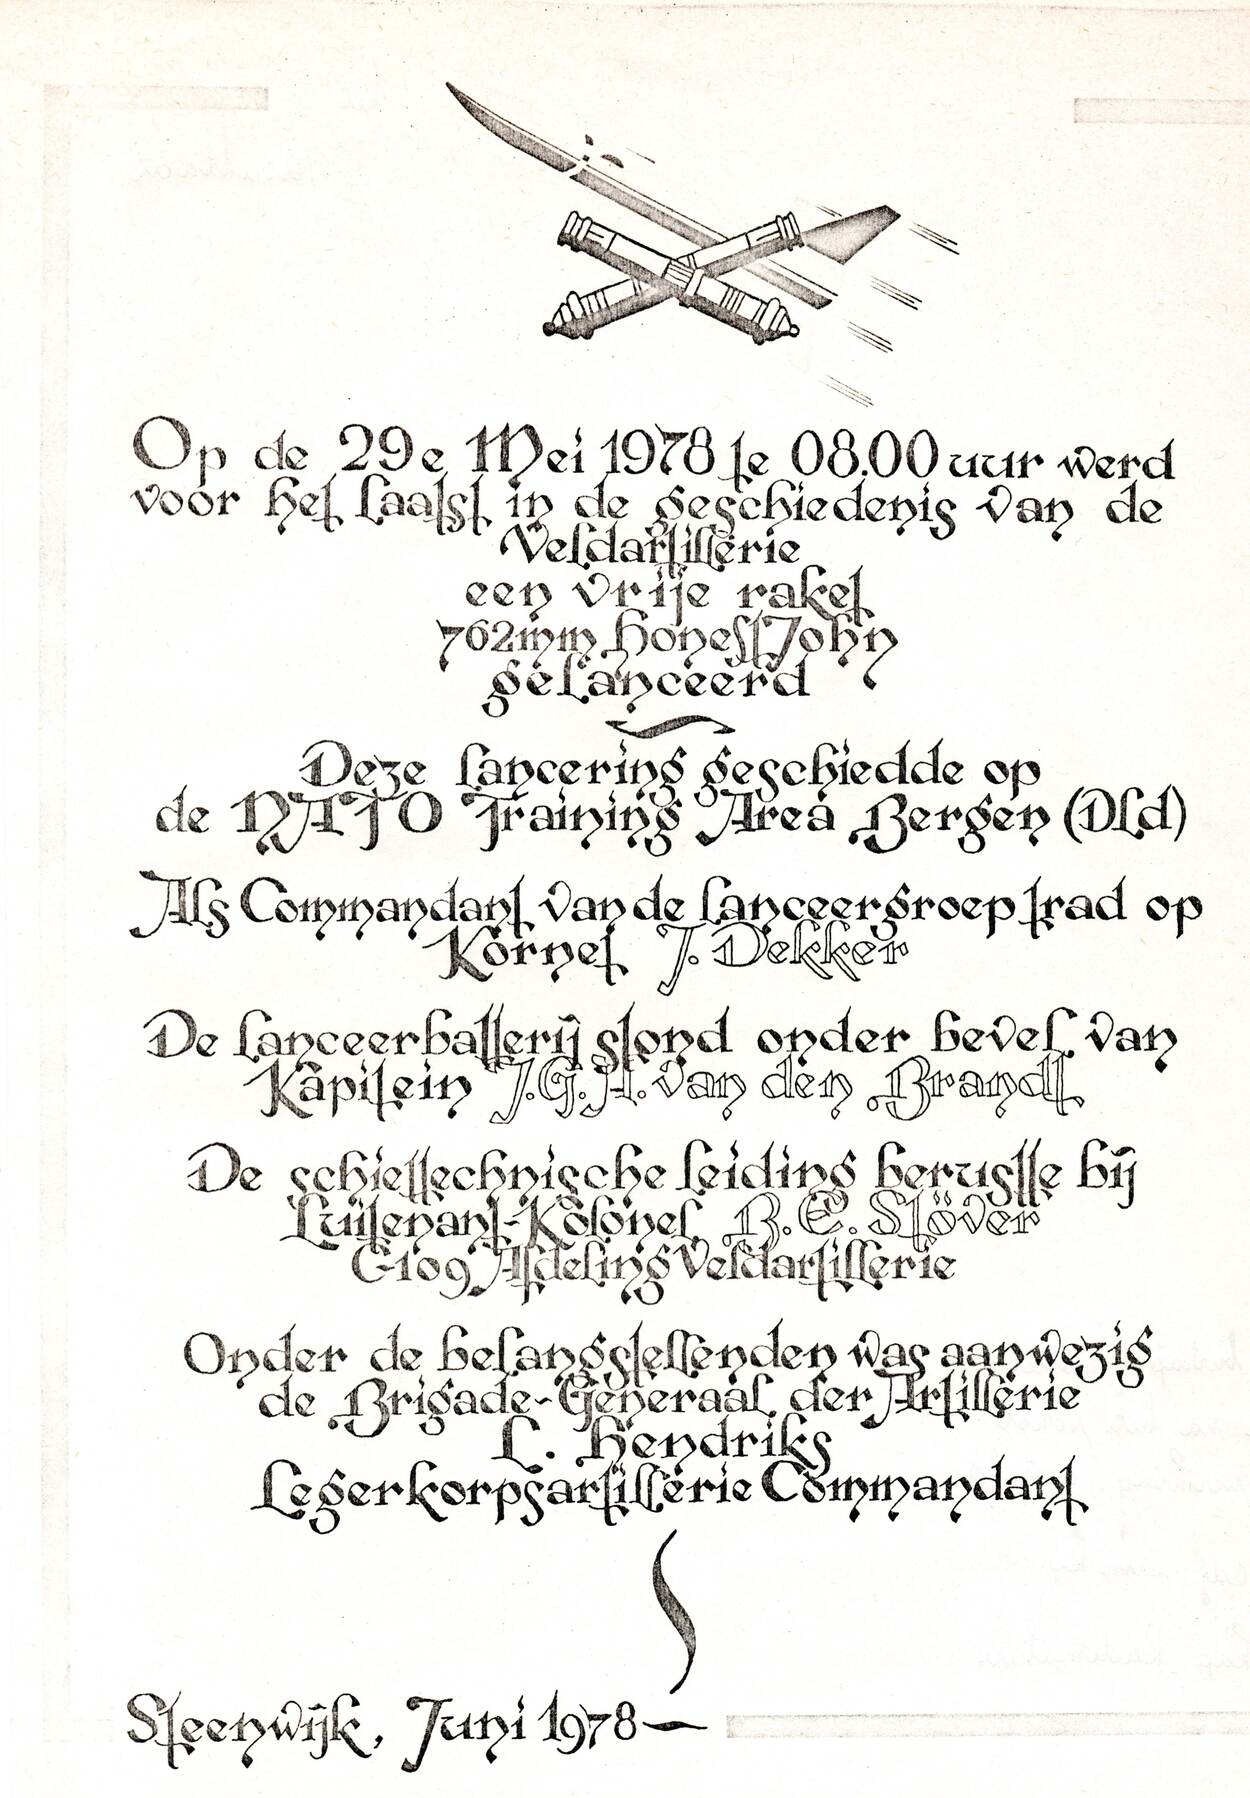 Op de 29e Mei 1978 te 08.00 uur werd
voor het laatst in de geschiedenis van de
Veldartillerie
een vrije raket
762mm Honest John
gelanceerd
Deze lancering geschiedde op
de NATO Training Area Bergen (Dld)
Als Commandant van de lanceergroep trad op
Kornet J. Dekker
De lanceerbatterij stond onder bevel van
Kapitein J.G.A. van den Brandt
De schiettechnische leiding berustte bij
Luitenant-Kolonel B.E. Stöver
C-109 Afdeling Veldartillerie
Onder de belangstellenden was aanwezig
de Brigade-Generaal der Artillerie
L. Hendriks
Legerkorpsartillerie Commandant
Steenwijk, Juni 1978